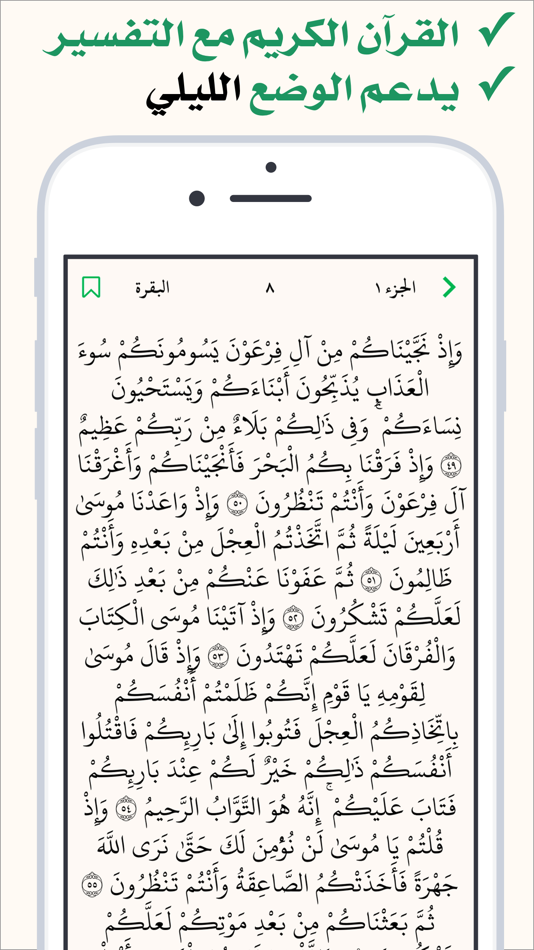 ✓ القرآن الكريم مع التفسير
✓ يدعم الوضع الليلي
الجزء ١ ٨ البقرة
وَإِذْ نَجَّيْنَاكُمْ مِنْ آلِ فِرْعَوْنَ يَسُومُونَكُمْ سُوءَ
الْعَذَابِ يُذَبِّحُونَ أَبْنَاءَكُمْ وَيَسْتَحْيُونَ
نِسَاءَكُمْ ۚ وَفِي ذَٰلِكُمْ بَلَاءٌ مِنْ رَبِّكُمْ عَظِيمٌ
٤٩ وَإِذْ فَرَقْنَا بِكُمُ الْبَحْرَ فَأَنْجَيْنَاكُمْ وَأَغْرَقْنَا
آلَ فِرْعَوْنَ وَأَنْتُمْ تَنْظُرُونَ ٥٠ وَإِذْ وَاعَدْنَا مُوسَىٰ
أَرْبَعِينَ لَيْلَةً ثُمَّ اتَّخَذْتُمُ الْعِجْلَ مِنْ بَعْدِهِ وَأَنْتُمْ
ظَالِمُونَ ٥١ ثُمَّ عَفَوْنَا عَنْكُمْ مِنْ بَعْدِ ذَٰلِكَ
لَعَلَّكُمْ تَشْكُرُونَ ٥٢ وَإِذْ آتَيْنَا مُوسَى الْكِتَابَ
وَالْفُرْقَانَ لَعَلَّكُمْ تَهْتَدُونَ ٥٣ وَإِذْ قَالَ مُوسَىٰ
لِقَوْمِهِ يَا قَوْمِ إِنَّكُمْ ظَلَمْتُمْ أَنْفُسَكُمْ
بِاتِّخَاذِكُمُ الْعِجْلَ فَتُوبُوا إِلَىٰ بَارِئِكُمْ فَاقْتُلُوا
أَنْفُسَكُمْ ذَٰلِكُمْ خَيْرٌ لَكُمْ عِنْدَ بَارِئِكُمْ
فَتَابَ عَلَيْكُمْ ۚ إِنَّهُ هُوَ التَّوَّابُ الرَّحِيمُ ٥٤ وَإِذْ
قُلْتُمْ يَا مُوسَىٰ لَنْ نُؤْمِنَ لَكَ حَتَّىٰ نَرَى اللَّهَ
جَهْرَةً فَأَخَذَتْكُمُ الصَّاعِقَةُ وَأَنْتُمْ تَنْظُرُونَ ٥٥
ثُمَّ بَعَثْنَاكُمْ مِنْ بَعْدِ مَوْتِكُمْ لَعَلَّكُمْ